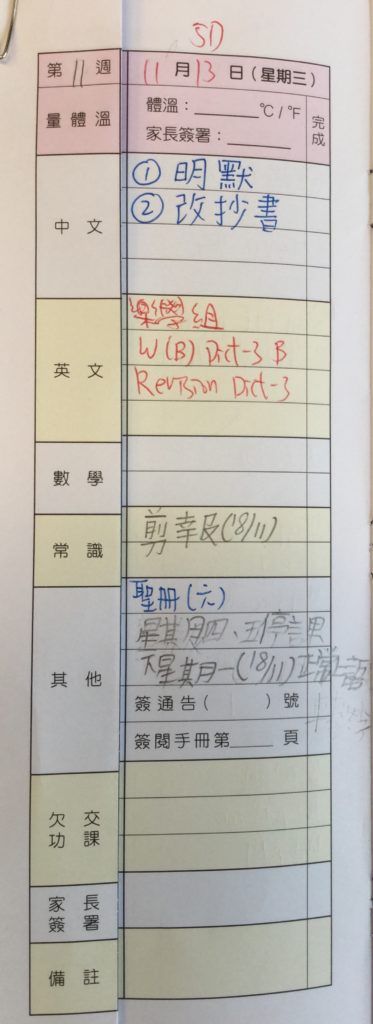 5D
第 11 週 11 月 13 日 (星期三)
量體溫 體溫：______ °C / °F 完成
家長簽署：______
中文 ① 明默
② 改抄書
英文 樂學組
W(B) Dict-3 B
Revision Dict-3
數學
常識 剪 報 (18/11)
其他 聖冊(六)
星期四、五停課
下星期一(18/11)正常
簽通告( ) 號
簽閱手冊第____ 頁
欠交功課
家長簽署
備註